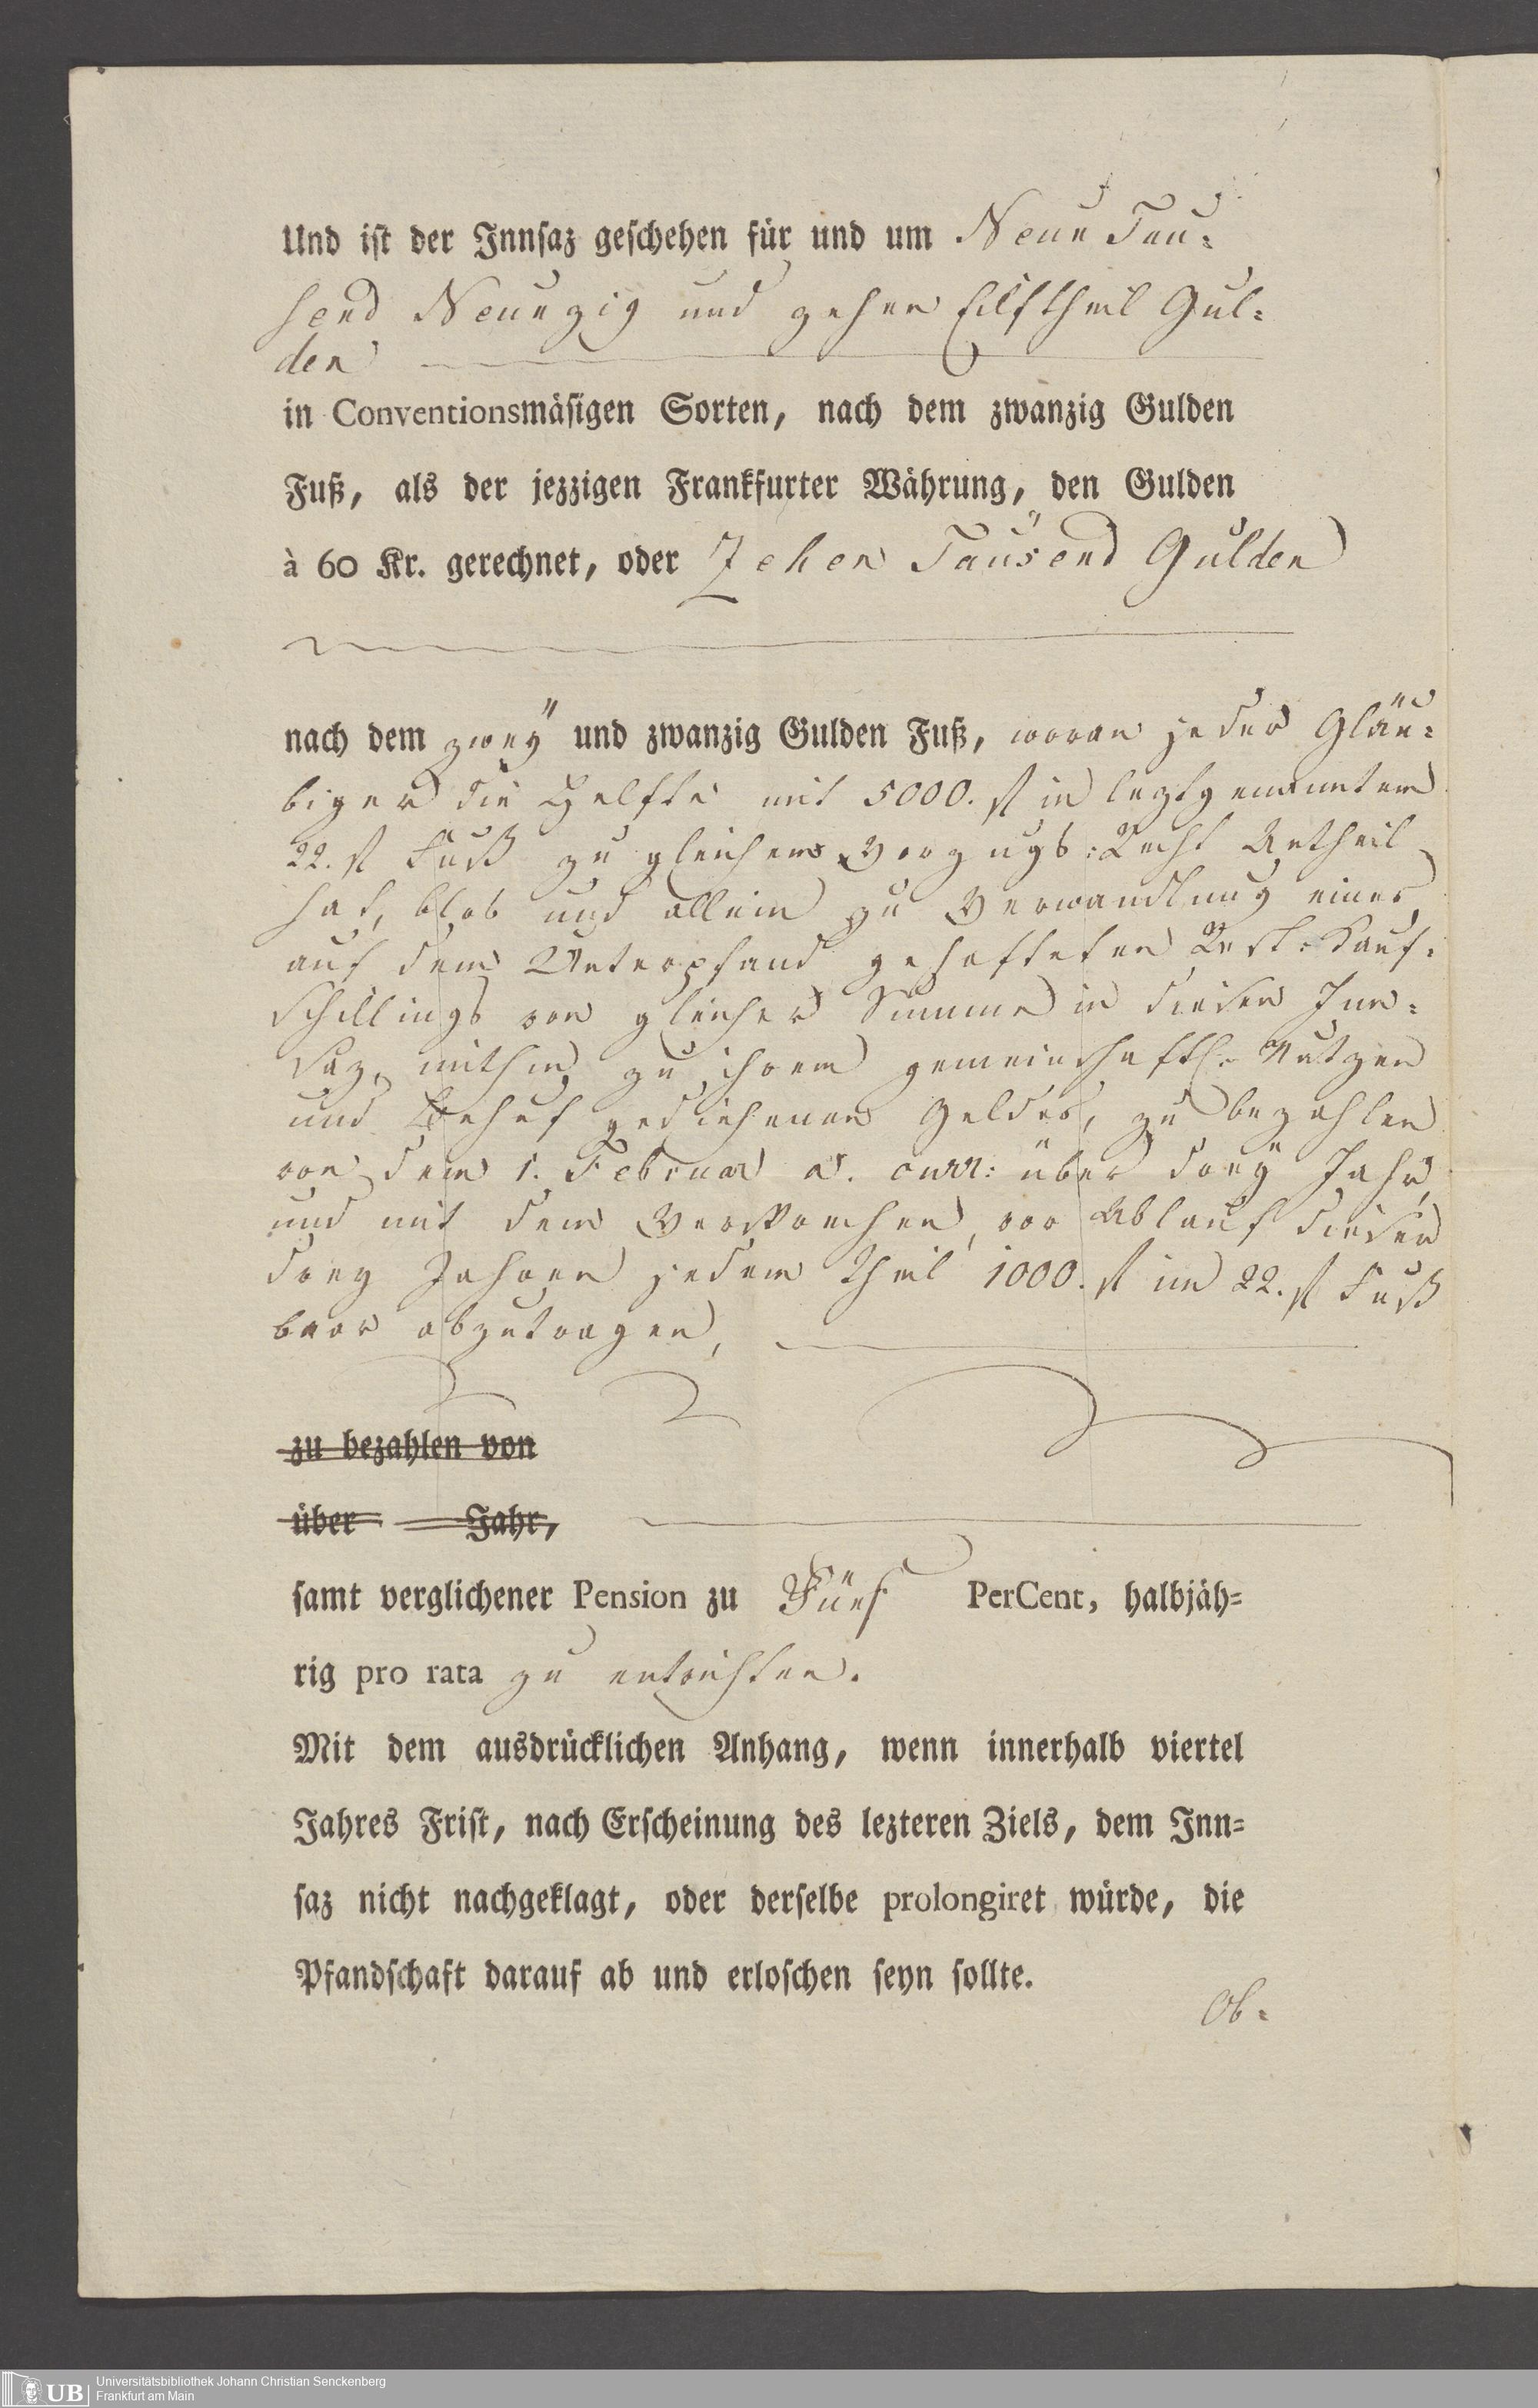 Und ist der Innsaz geschehen für und um Neun Tau=
send Neunzig und zehen Eilftheil Gul=
den
in Conventionsmäsigen Sorten, nach dem zwanzig Gulden
Fuß, als der jezzigen Frankfurter Währung, den Gulden
à 60 Kr. gerechnet, oder Zehen Tausend Gulden
nach dem zweÿ und zwanzig Gulden Fuß, woran jeder Gläu=
biger die Helfte mit 5000. fl in leztgenanntem
22. fl Fuß zu gleichem Vorzugs=Recht Antheil
hat, blos und allein zu Verwandlung eines
auf dem Unterpfand gehafteten Rest=Kauf=
schillings von gleicher Summe in diesen Inn=
saz, mithin zu ihrem gemeinschaftl. Nutzen
und Behuf gediehenen Geldes, zu bezahlen
von dem 1. Februar a. curr: über dreÿ Jahr,
und mit dem Versprechen, vor Ablauf dieser
drey Jahren jedem Theil 1000. fl im 22. fl Fuß
baar abzutragen,
zu bezahlen von
über Jahr,
samt verglichener Pension zu Fünf PerCent, halbjäh=
rig pro rata zu entrichten.
Mit dem ausdrücklichen Anhang, wenn innerhalb viertel
Jahres Frist, nach Erscheinung des lezteren Ziels, dem Inn=
saz nicht nachgeklagt, oder derselbe prolongiret würde, die
Pfandschaft darauf ab und erloschen seyn sollte.
Ob=
UB
Universitätsbibliothek Johann Christian Senckenberg
Frankfurt am Main